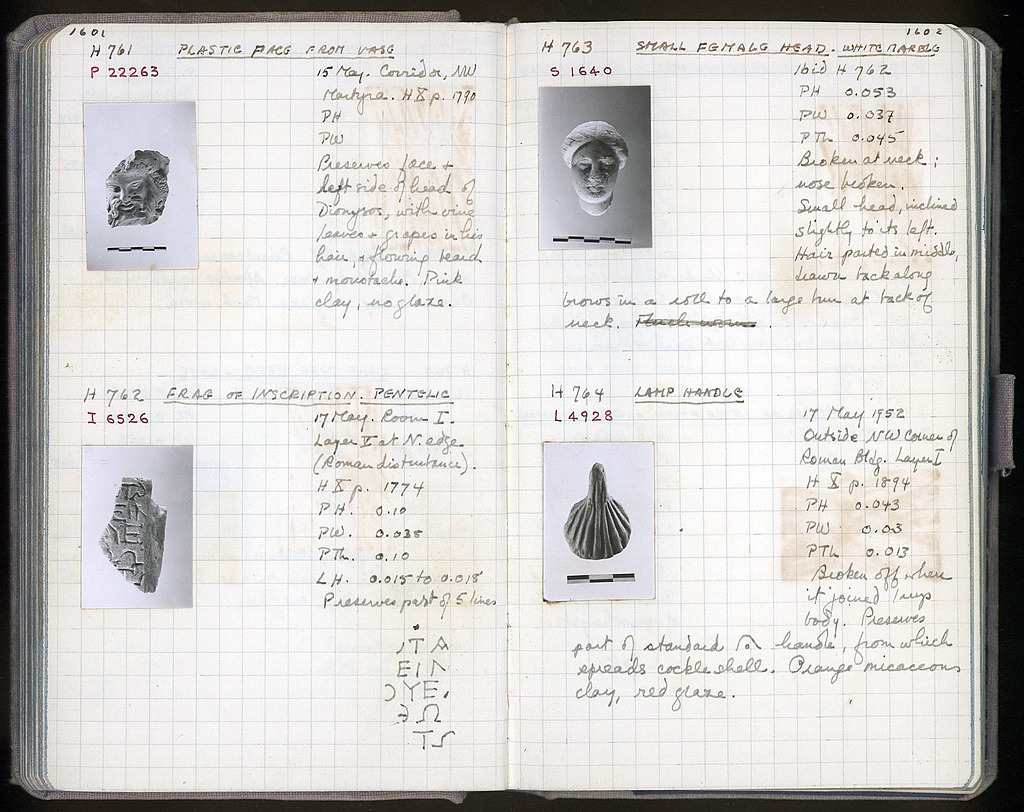 1601
H 761 PLASTIC FACE FROM VASE
P 22263
15 May. Corridor, NW
Martyra. H X p. 1790
PH
PW
Preserves face +
left side of head of
Dionysos, with vine
leaves + grapes in his
hair, + flowing beard
+ moustache. Pink
clay, no glaze.
H 762 FRAG OF INSCRIPTION. PENTELIC
I 6526
17 May. Room I.
Layer II at N. edge
(Roman disturbance).
H X p. 1774
PH. 0.10
PW. 0.038
PTh. 0.10
LH. 0.015 to 0.018
Preserves part of 5 lines
ΤΑ
ΕΙΓ
ΟΥΕ.
Ω
Τ
1602
H 763 SMALL FEMALE HEAD. WHITE MARBLE
S 1640
Ibid H 762
PH 0.053
PW 0.037
PTh 0.045
Broken at neck;
nose broken.
Small head, inclined
slightly to its left.
Hair parted in middle,
drawn back along
brows in a roll to a large bun at back of
neck.
H 764 LAMP HANDLE
L 4928
17 May 1952
Outside NW Corner of
Roman Bldg. Layer I
H X p. 1894
PH 0.043
PW 0.03
PTh 0.013
Broken off where
it joined lamp
body. Preserves
part of standard handle, from which
spreads cockle shell. Orange micaceous
clay, red glaze.